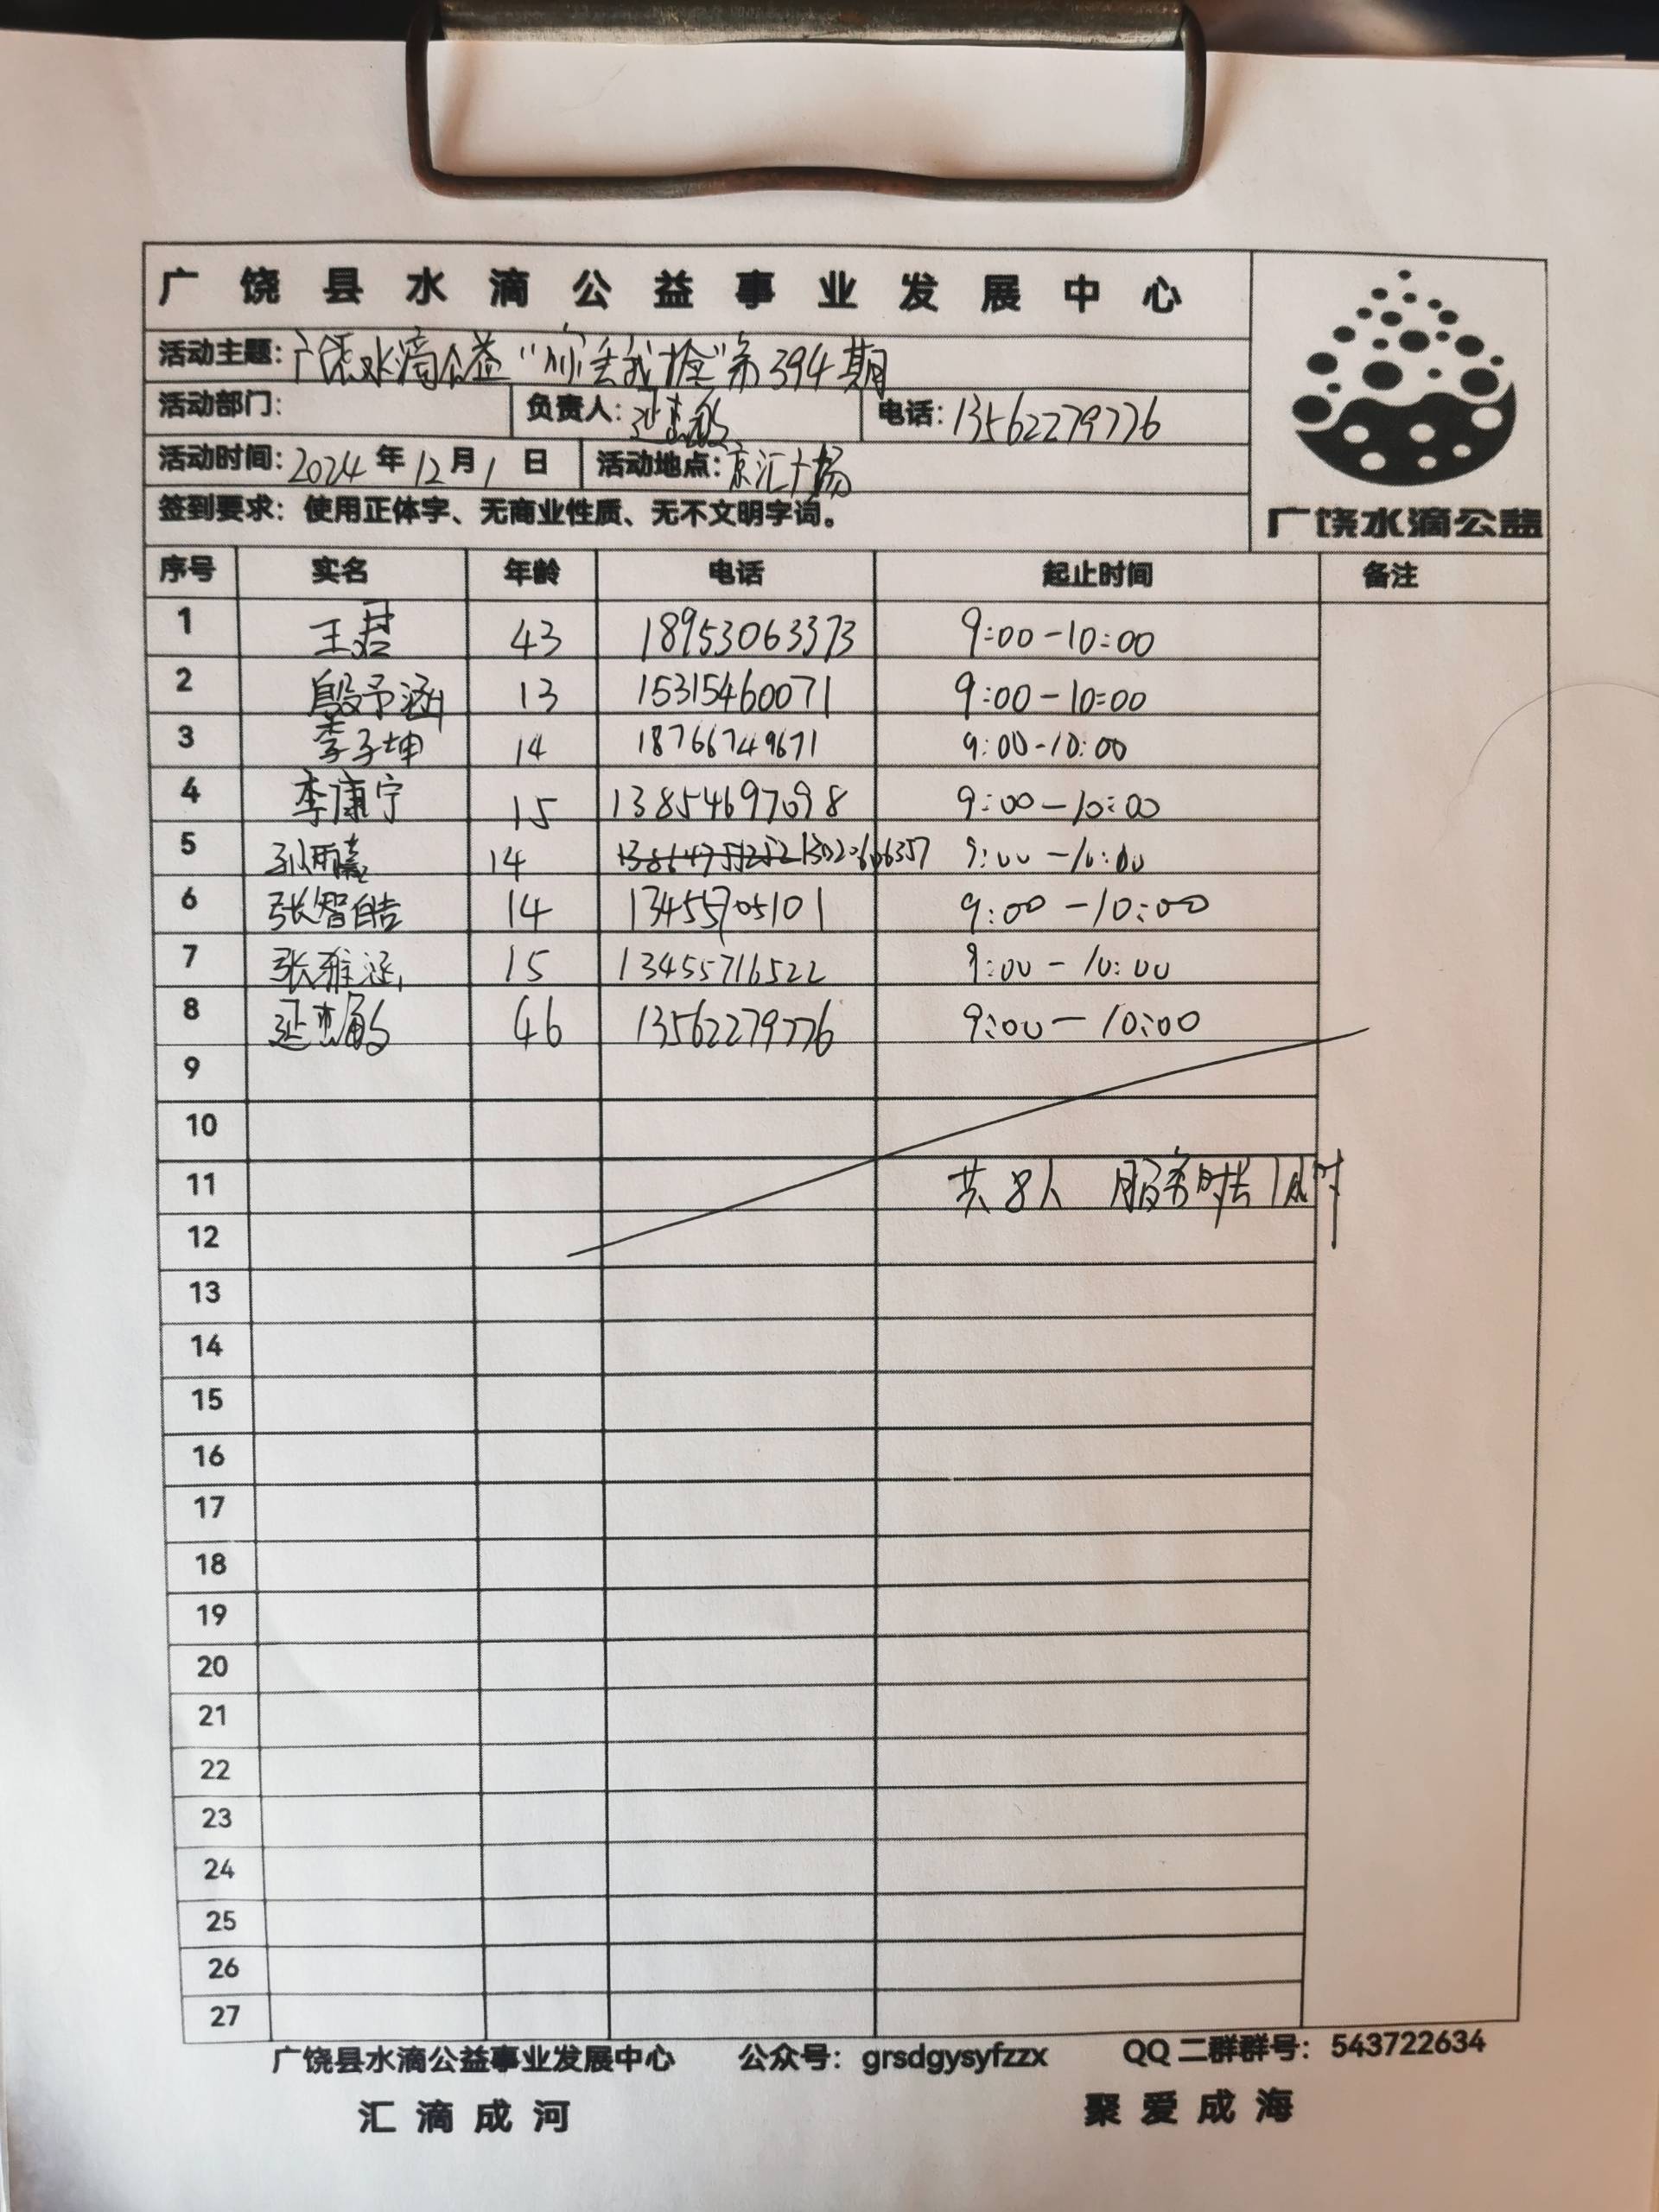 广饶县水滴公益事业发展中心
活动主题：广饶水滴公益“你丢我捡”第394期
活动部门： 负责人： 电话：13562279776
活动时间：2024年12月1日 活动地点：京汇广场
签到要求：使用正体字、无商业性质、无不文明字词。
广饶水滴公益
序号 实名 年龄 电话 起止时间 备注
1 王君 43 18953063373 9:00-10:00
2 殷予涵 13 15315460071 9:00-10:00
3 李子坤 14 18766749671 9:00-10:00
4 李康宁 15 13854697098 9:00-10:00
5 孙雨 14 9:00-10:00
6 张智皓 14 13455705101 9:00-10:00
7 张雅涵 15 13455716522 9:00-10:00
8 46 13562279776 9:00-10:00
9
10
11 共8人 服务时长1小时
12
13
14
15
16
17
18
19
20
21
22
23
24
25
26
27
广饶县水滴公益事业发展中心 公众号：grsdgysyfzzx QQ二群群号：543722634
汇滴成河 聚爱成海